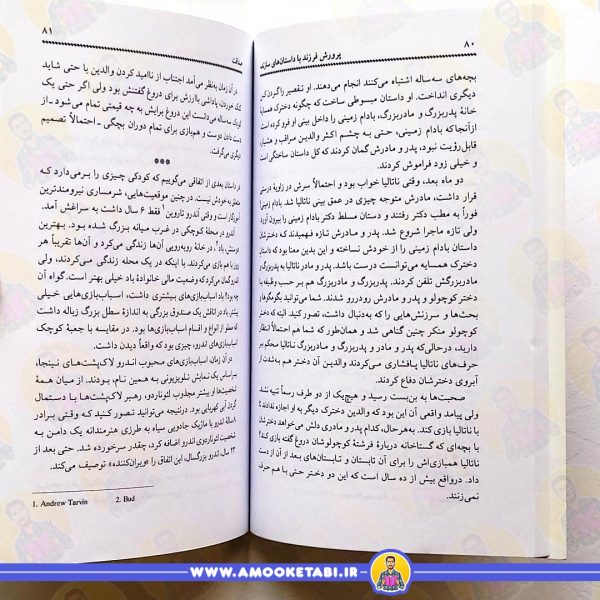 ۸۰
پرورش فرزند با داستان‌های سازنده
بچه‌های سه‌ساله اشتباه می‌کنند انجام می‌دهند. او تقصیر را گردن کس
دیگری انداخت. او داستان مبسوطی ساخت که چگونه دخترک همسایهٔ
خانهٔ پدربزرگ و مادربزرگ، بادام زمینی را داخل بینی او فرو کرده است.
ازآنجاکه بادام زمینی، حتی به چشم اکثر والدین مراقب و هشیار،
قابل‌رؤیت نبود، پدر و مادرش گمان کردند که کل داستان ساختگی است
و خیلی زود فراموش کردند.
دو ماه بعد، وقتی ناتالیا خواب بود و احتمالاً سرش در زاویهٔ درستی
قرار داشت، مادرش متوجه چیزی در عمق بینی ناتالیا شد. آن‌ها
فوراً به مطب دکتر رفتند و دستان مسلط دکتر بادام زمینی را بیرون آورد
ولی تازه ماجرا شروع شد. پدر و مادرش تازه فهمیدند که دخترشان
داستان بادام زمینی را از خودش نساخته و این بدین معنا بود که داستان
دخترک همسایه می‌توانست درست باشد. پدر و مادر ناتالیا به پدربزرگ و
مادربزرگش تلفن کردند. پدربزرگ و مادربزرگ هم بر حسب وظیفه با
دختر کوچولو و مادرش رودررو شدند. شما می‌توانید بگومگوها و
بحث‌ها و سرزنش‌هایی را که به‌دنبال داشت، تصور کنید. البته که دختر
کوچولو منکر چنین گناهی شد و همان‌طور که شما هم احتمالاً انتظار
دارید، درحالی‌که پدر و مادر و پدربزرگ و مادربزرگ ناتالیا محکم بر
حرف‌های ناتالیا پافشاری می‌کردند والدین آن دختر هم به‌شدت از
آبروی دخترشان دفاع کردند.
صحبت‌ها به بن‌بست رسید و هیچ‌یک از دو طرف رسماً تنبیه نشد
ولی پیامد واقعی آن این بود که والدین دخترک دیگر به او اجازه ندادند تا
با ناتالیا بازی کند. به‌هرحال، کدام پدر و مادری دلش می‌خواهد دخترش
با بچه‌ای که گستاخانه دربارهٔ فرشتهٔ کوچولوشان دروغ گفته بازی کند؟
ناتالیا همبازی‌اش را برای آن تابستان و تابستان‌های بعد از آن از دست
داد. درواقع بیش از ده سال است که این دو دختر حتی با هم حرف
نمی‌زنند.
صداقت
۸۱
در آن زمان به‌نظر می‌آمد اجتناب از ناامید کردن والدین یا حتی شاید
کتک خوردن، پاداشی باارزش برای دروغ گفتنش بود ولی اگر حتی یک
کودک سه‌ساله می‌دانست این دروغ برایش به چه قیمتی تمام می‌شود ـ از
دست دادن دوست و هم‌بازی برای تمام دوران بچگی ـ احتمالاً تصمیم
دیگری می‌گرفت.
***
در داستان بعدی از اتفاقی می‌گوییم که کودکی چیزی را برمی‌دارد که
متعلق به‌خودش نیست. در چنین موقعیت‌هایی، شرمساری نیرومندترین
آموزگار است و وقتی اندرو تاروین¹ فقط ۶ سال داشت به سراغش آمد.
اندرو در محلهٔ کوچکی در غرب میانه بزرگ شده بود. بهترین
دوستش، باد²، در خانهٔ روبه‌رویی آن‌ها زندگی می‌کرد و آن‌ها تقریباً هر
روز با هم بازی می‌کردند. با اینکه در یک محله زندگی می‌کردند،
اندرو گمان می‌کرد که وضعیت مالی خانوادهٔ باد خیلی بهتر است. گواه آن
چه بود؟ باد اسباب‌بازی‌های بیشتری داشت، اسباب‌بازی‌هایی خیلی
بیشتر. باد در اتاقش یک صندوق بزرگ به اندازهٔ سطل بزرگ زباله داشت
که مملو از انواع و اقسام اسباب‌بازی‌ها بود. در مقایسه با جعبهٔ کوچک
اسباب‌بازی‌های اندرو، چیزی بود که واقعاً دیدن داشت.
در آن زمان، اسباب‌بازی‌های محبوب اندرو لاک‌پشت‌های نینجا،
براساس یک نمایش تلویزیونی به همین نام، بودند. از میان همهٔ
شخصیت‌ها او بیشتر مجذوب لئوناردو، رهبر لاک‌پشت‌ها با دستمال
گردن آبی کهربایی بود. درنتیجه می‌توانید تصور کنید که وقتی برادر
۸ سالهٔ اندرو با ماژیک جادویی سیاه به طرزی هنرمندانه یک دامن به
شخصیت لئوناردوی اندرو اضافه کرد، چقدر سرخورده شد. حتی بعد از
۲۳ سال، اندرو بزرگسال، این اتفاق را «ویران‌کننده» توصیف می‌کند.
1. Andrew Tarvin 2. Bud
WWW.AMOOKETABI.IR